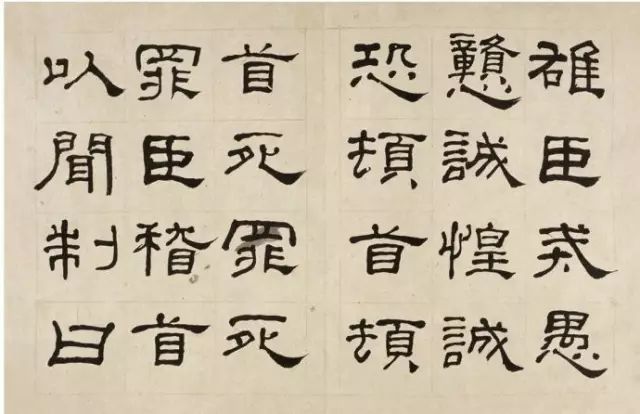 雄臣戒愚
戇誠惶誠
恐頓首頓
首死罪死
罪臣稽首
以聞制曰